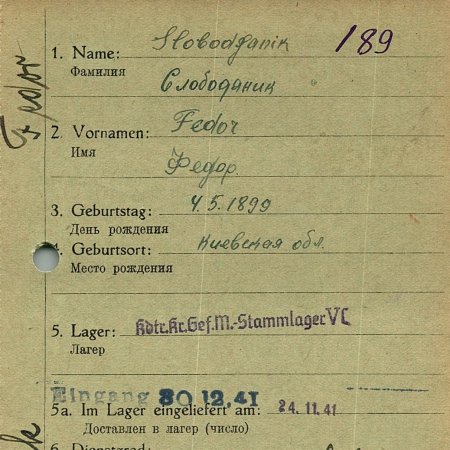 /189
1. Name: Slobodjanik
Фамилия Слободяник
2. Vornamen: Fedor
Имя Федор
Fedor
3. Geburtstag: 4.5.1899
День рождения
4. Geburtsort: Киевская обл.
Место рождения
5. Lager: Kdtr.Kr.Gef.M.-Stammlager VC
Лагер
Eingang 30.12.41
5a. Im Lager eingeliefert am: 24.11.41
Доставлен в лагер (число)
6. Dienstgrad: